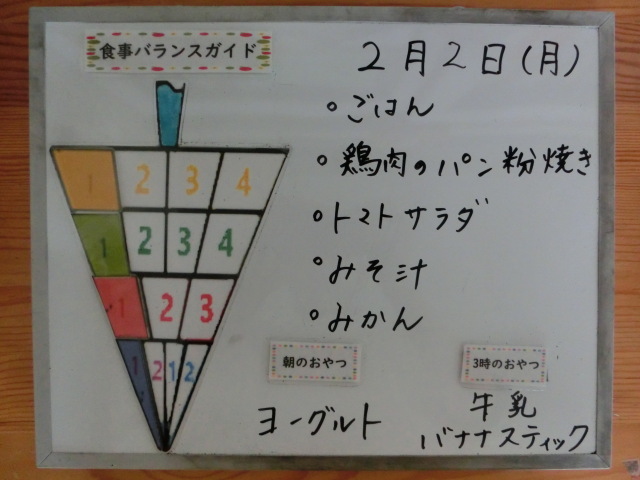 食事バランスガイド
2月2日(月)
・ごはん
・鶏肉のパン粉焼き
・トマトサラダ
・みそ汁
・みかん
1 2 3 4
1 2 3 4
1 2 3
1 2 1 2
朝のおやつ
ヨーグルト
3時のおやつ
牛乳
バナナスティック